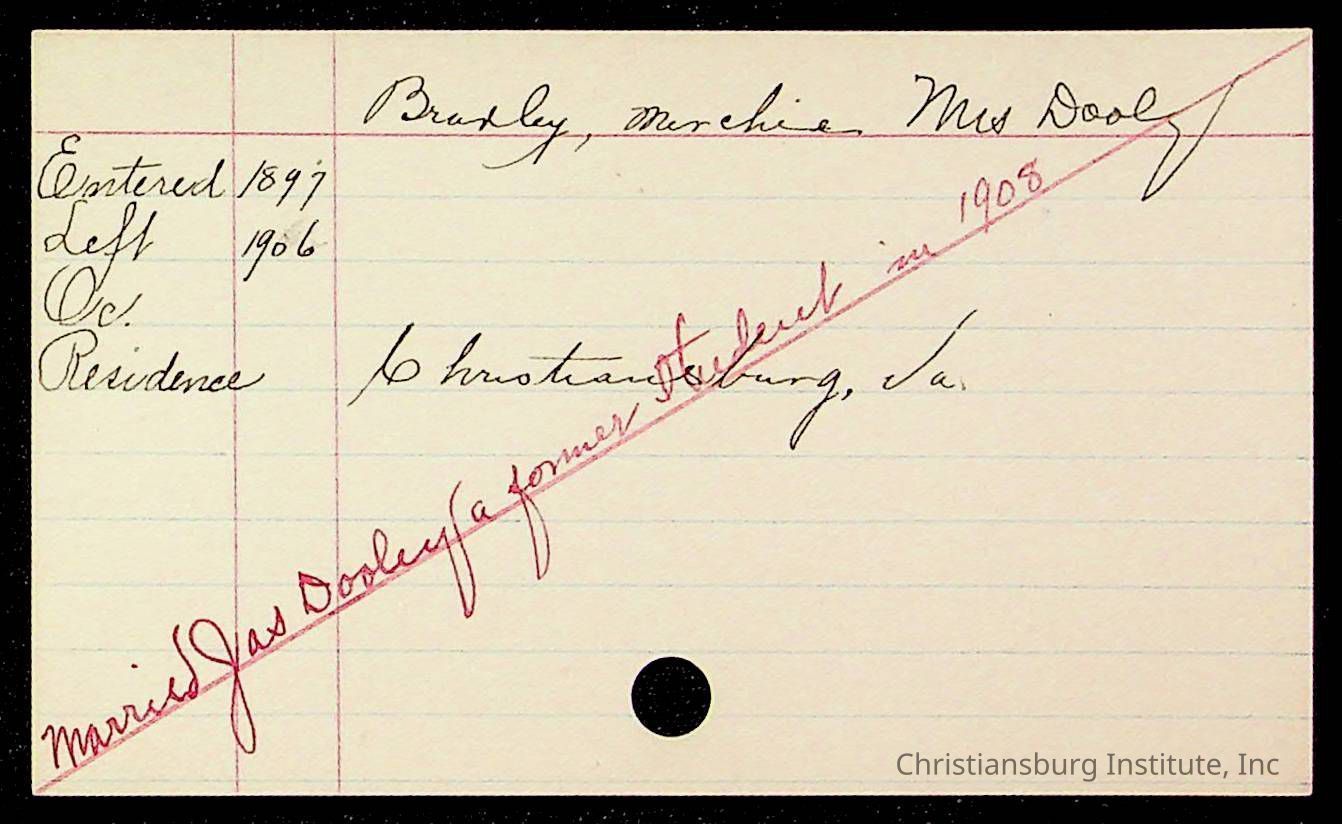 Bradley, Merchie Mrs Dooley
Entered 1897
Left 1906
Oc.
Residence Christiansburg, Va.
Married Jas Dooley (a former student in 1908
Christiansburg Institute, Inc